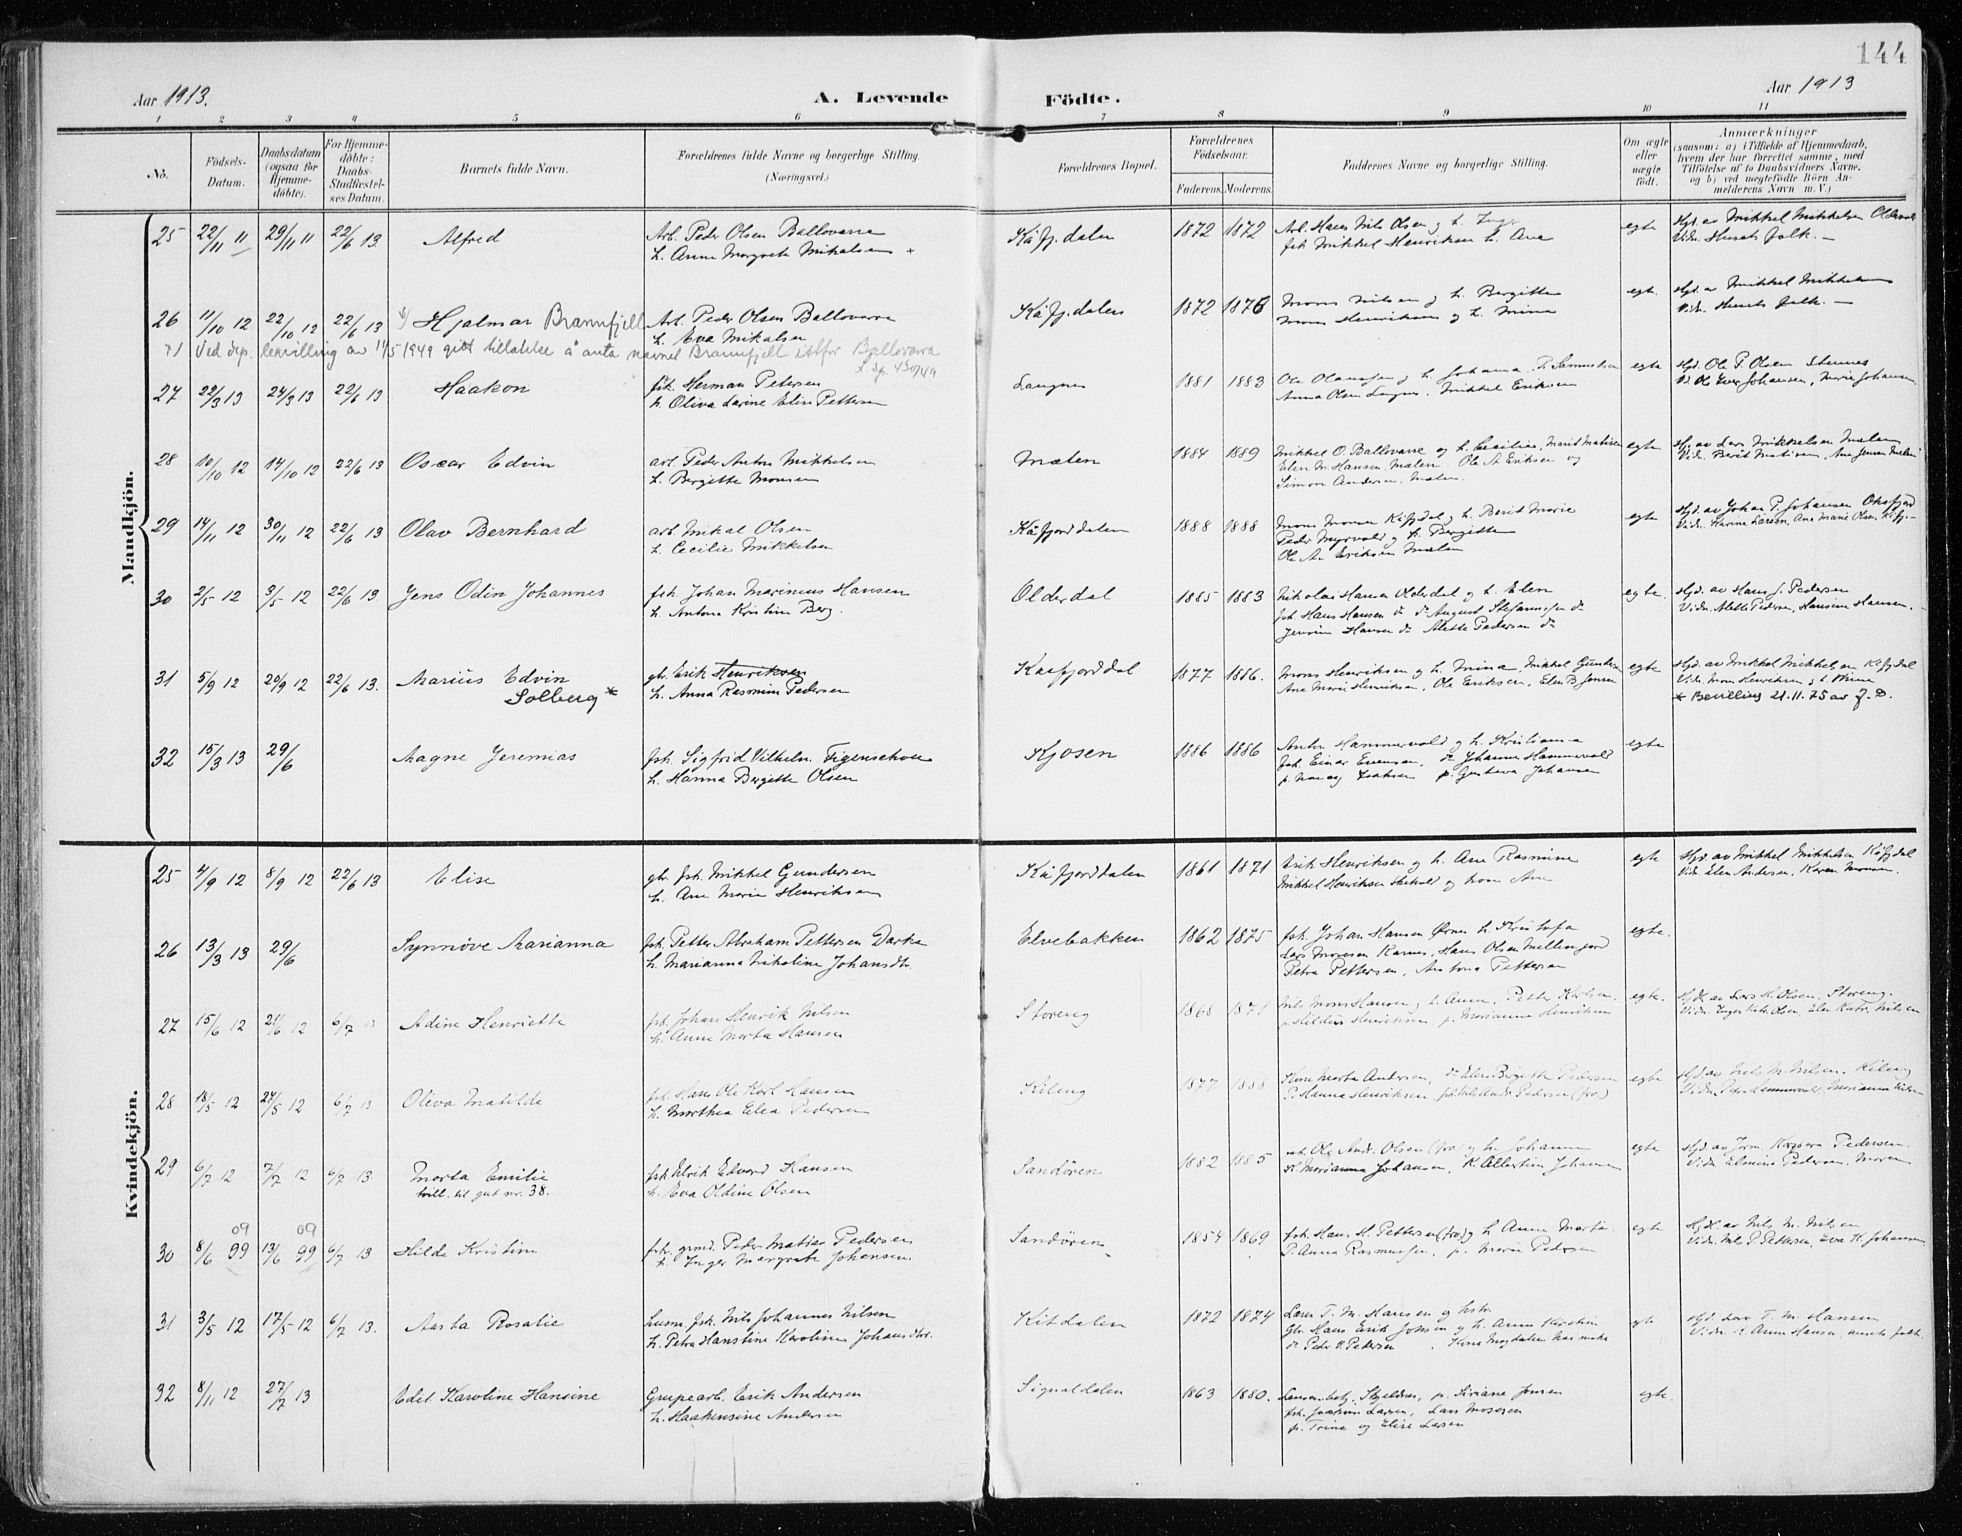 144
Aar 1913.
A. Levende Födte.
Aar 1913
1 2 3 4 5 6 7 8 8 9 10 11
No.
Födsels-Datum.
Daabsdatum (ogsaa for Hjemmedöbte).
For Hjemmedöbte: Daabs-Stadfæstelses Datum.
Barnets fulde Navn.
Forældrenes fulde Navne og borgerlige Stilling. (Næringsvei.)
Forældrenes Bopæl.
Forældrenes Födselsaar.
Faderens. Moderens.
Faddernes Navne og borgerlige Stilling.
Om ægte eller uægte födt.
Anmærkninger
(saasom: a) i Tilfælde af Hjemmedaab, hvem der har forrettet samme, med Tilföielse af to Daabsvidners Navne, og b) ved uægtefödte Börn Anmelderens Navn m. V.)
Mandkjön.
25 22/11 11 29/11 11 22/6 13 Alfred
Arb. Peder Olsen Ballovarre
h. Anne Margrete Mikalsen +
Kåfj.dalen 1872 1872
Arb. Hans Nils Olsen og h. Inger
fsk. Mikkel Henriksen h. Ane
egte
Hjd. av Mikkel Mikkelsen
Vidn. Husets folk. —
26 11/10 12 22/10 12 22/6 13 Hjalmar Brannfjell
Arb. Peder Olsen Ballovarre
h. Eva Mikalsen
Kåfj.dalen 1872 1876
Mons Nilsen og h. Bergitte
Mons Henriksen og h. Nina
egte.
Hjd. av Mikkel Mikkelsen
Vidn. Husets folk. —
Ved dep. bevilling av 11/5 1949 gitt tillatelse å anta navnet Brannfjell istfor Ballovara
27 22/3 13 24/3 13 22/6 13 Haakon
fsk. Herman Petersen
h. Oliva Larine Elise Pettersen
Langnes 1881 1883
Anna Olsen Mikkel Eriksen
egte
Hjd. Ole P. Olsen Stennes
Johansen, Marie Johansen.
28 10/10 12 14/10 12 22/6 13 Oscar Edvin
arb. Peder Anton Mikkelsen
h. Bergitte Monsen
Mælen 1884 1889
Mikkel O. Ballovarre og h. Cecilie, Marit Matisen
Elen M. Hansen Mælen. Ole A. Eriksen og
Simon Andersen. Mælen.
egte
Hj. av Lars Mikkelsen Mælen
Vidn. Berit Matisen, Ane Jensen Mælen
29 14/11 12 30/11 12 22/6 13 Olav Bernhard
arb. Mikal Olsen
h. Cecilie Mikkelsen
Kåfjorddalen 1888 1888
Mons Monsen Kåfjdal og h. Berit Marie
Peder Myrvold og h. Bergitte
Ole An. Eriksen Mælen
egte
Hjd. av Johan P. Johansen
Vidn. Karine Larsen, Ane Marie Olsen, Kåfj. —
30 2/5 12 3/5 12 22/6 13 Jens Odin Johannes
fsk. Johan Marinius Hansen
h. Antona Kristine Berg.
Olderdal 1885 1883
Nikolai Hansen Olderdal og h. Elen
fsk Hans Hansen do do August Stefanussen do
Hansen do Alette Pedersen do
egte.
Hjd. av Hans J. Pedersen
Vidn. Alette Pedersen, Hansine Hansen.
31 5/9 12 20/9 12 22/6 13. Marius Edvin
Solberg *
gbr. Erik Henriksen
h. Anna Rasmine Pedersen
Kaafjorddal 1877 1886.
Mons Henriksen og h. Nina, Mikkel Gundersen
Ane Marie Henriksen, Ole Eriksen, Elen B. Jensen
egte
Hjd. av Mikkel Mikkelsen Kåfjdal
Vidn. Mons Henriksen og h. Nina
* Bevilling 21.11.75 av J.D.
32 15/3 13 29/6 Aagne Jeremias
fsk. Sigfrid Vilhelm Figenschou
h. Hanna Bergitte Olsen
Kjosen 1886 1886
Anton Hammervold og h. Kristianna
fsk. Einar Evensen, do Johannes Hammervold
p. Gustava Johansen
egte
Kvindekjön.
25 4/9 12 8/9 12 22/6 13 Elise
gbr. fsk. Mikkel Gundersen
h. Ane Marie Henriksen
Kåfjorddalen 1861 1871
Erik Henriksen og h. Ane Rasmine
Mikkel Henriksen og kone Ane
egte
Hjd. av Mikkel Mikkelsen Kåfjdal
Vidn. Elen Andersen, Karen Monsen.
26 13/3 13 29/6 Synnøve Marianna
fsk. Petter Abraham Pettersen Darka
h. Marianna Nikoline Johansdtr.
Elvebakken 1862 1875
fsk. Johan Hansen h. Kristofa
Lars Monsen Hans Olsen
Petra Pettersen, Antona Pettersen
egte.
27 15/6 12 21/6 12 6/7 13 Adine Henriette
fsk. Johan Henrik Nilsen
h. Anne Marta Hansen
Storeng 1868 1871
Nils Mons Hansen og h. Anne, Petter Karlsen.
Henriksen p. Marianna Henriksen
egte.
Hjd. av Lars H. Olsen, Storeng.
Vidn. Inger Kath. Olsen, Elen Kathr. Nilsen
28 18/5 12 27/5 12 6/7 13 Oliva Matilde
fsk. Hans Ole Karl Hansen
h. Morthea Elea Pedersen
Kileng 1877 1888
Kone Marta Andersen, do Elen Bergitte Pedersen
P. Hanna Henriksen, Pedersen (fra)
egte
Hjd. av Nils M. Nilsen. Kileng
29 6/7 12 7/7 12 6/7 13. Marta Emilie
tvill. til gut nr. 38.
fsk Ulrik Edvard Hansen
h. Eva Oldine Olsen
Sandören 1882 1885
Ole Andr. Olsen (fra) og h. Johanne
K. Marianna Johansen, K. Albertine Johansen
egte
Hjd. av Jrm. Pedersen.
Vidn. Elmine Pedersen, Moren
30 8/6 99 09 13/6 99 09 6/7 13 Hilde Kristine
fsk. grmd. Peder Matias Pedersen
h. Inger Margrete Johansen.
Sandören 1854 1869
fsk. Hans H. Pettersen (fra) og h. Anne Marta
P. Anna Rasmussen, p. Marie Pedersen
egte
Hjd. av Nils M. Nilsen
Vidn. Nils P. Pettersen, Eva H. Johansen
31 3/5 12 17/5 12 6/7 13. Aasta Rosalie
husm. fsk. Nils Johannes Nilsen
h. Petra Hanstine Karoline Johansdtr.
Kitdalen 1872 1874
Lars T. M. Hansen og hstr.
Gbr. Hans Erik Jonsen og h. Anne Kirstine
do Peder O. Pedersen Kone Magdalen
egte
Hjd. Lars T. M. Hansen
Vidn. K. Anne Hansen, husets folk
32 8/11 12 27/7 13 Edel Karoline Hansine
Grupearb. Erik Andersen
h. Haakensine Andersen
Signaldalen 1863 1880.
p. Siriane Jensen
fsk. Joakim Larsen, Lars Mosesen
p. Trine og Elise Larsen
egte.